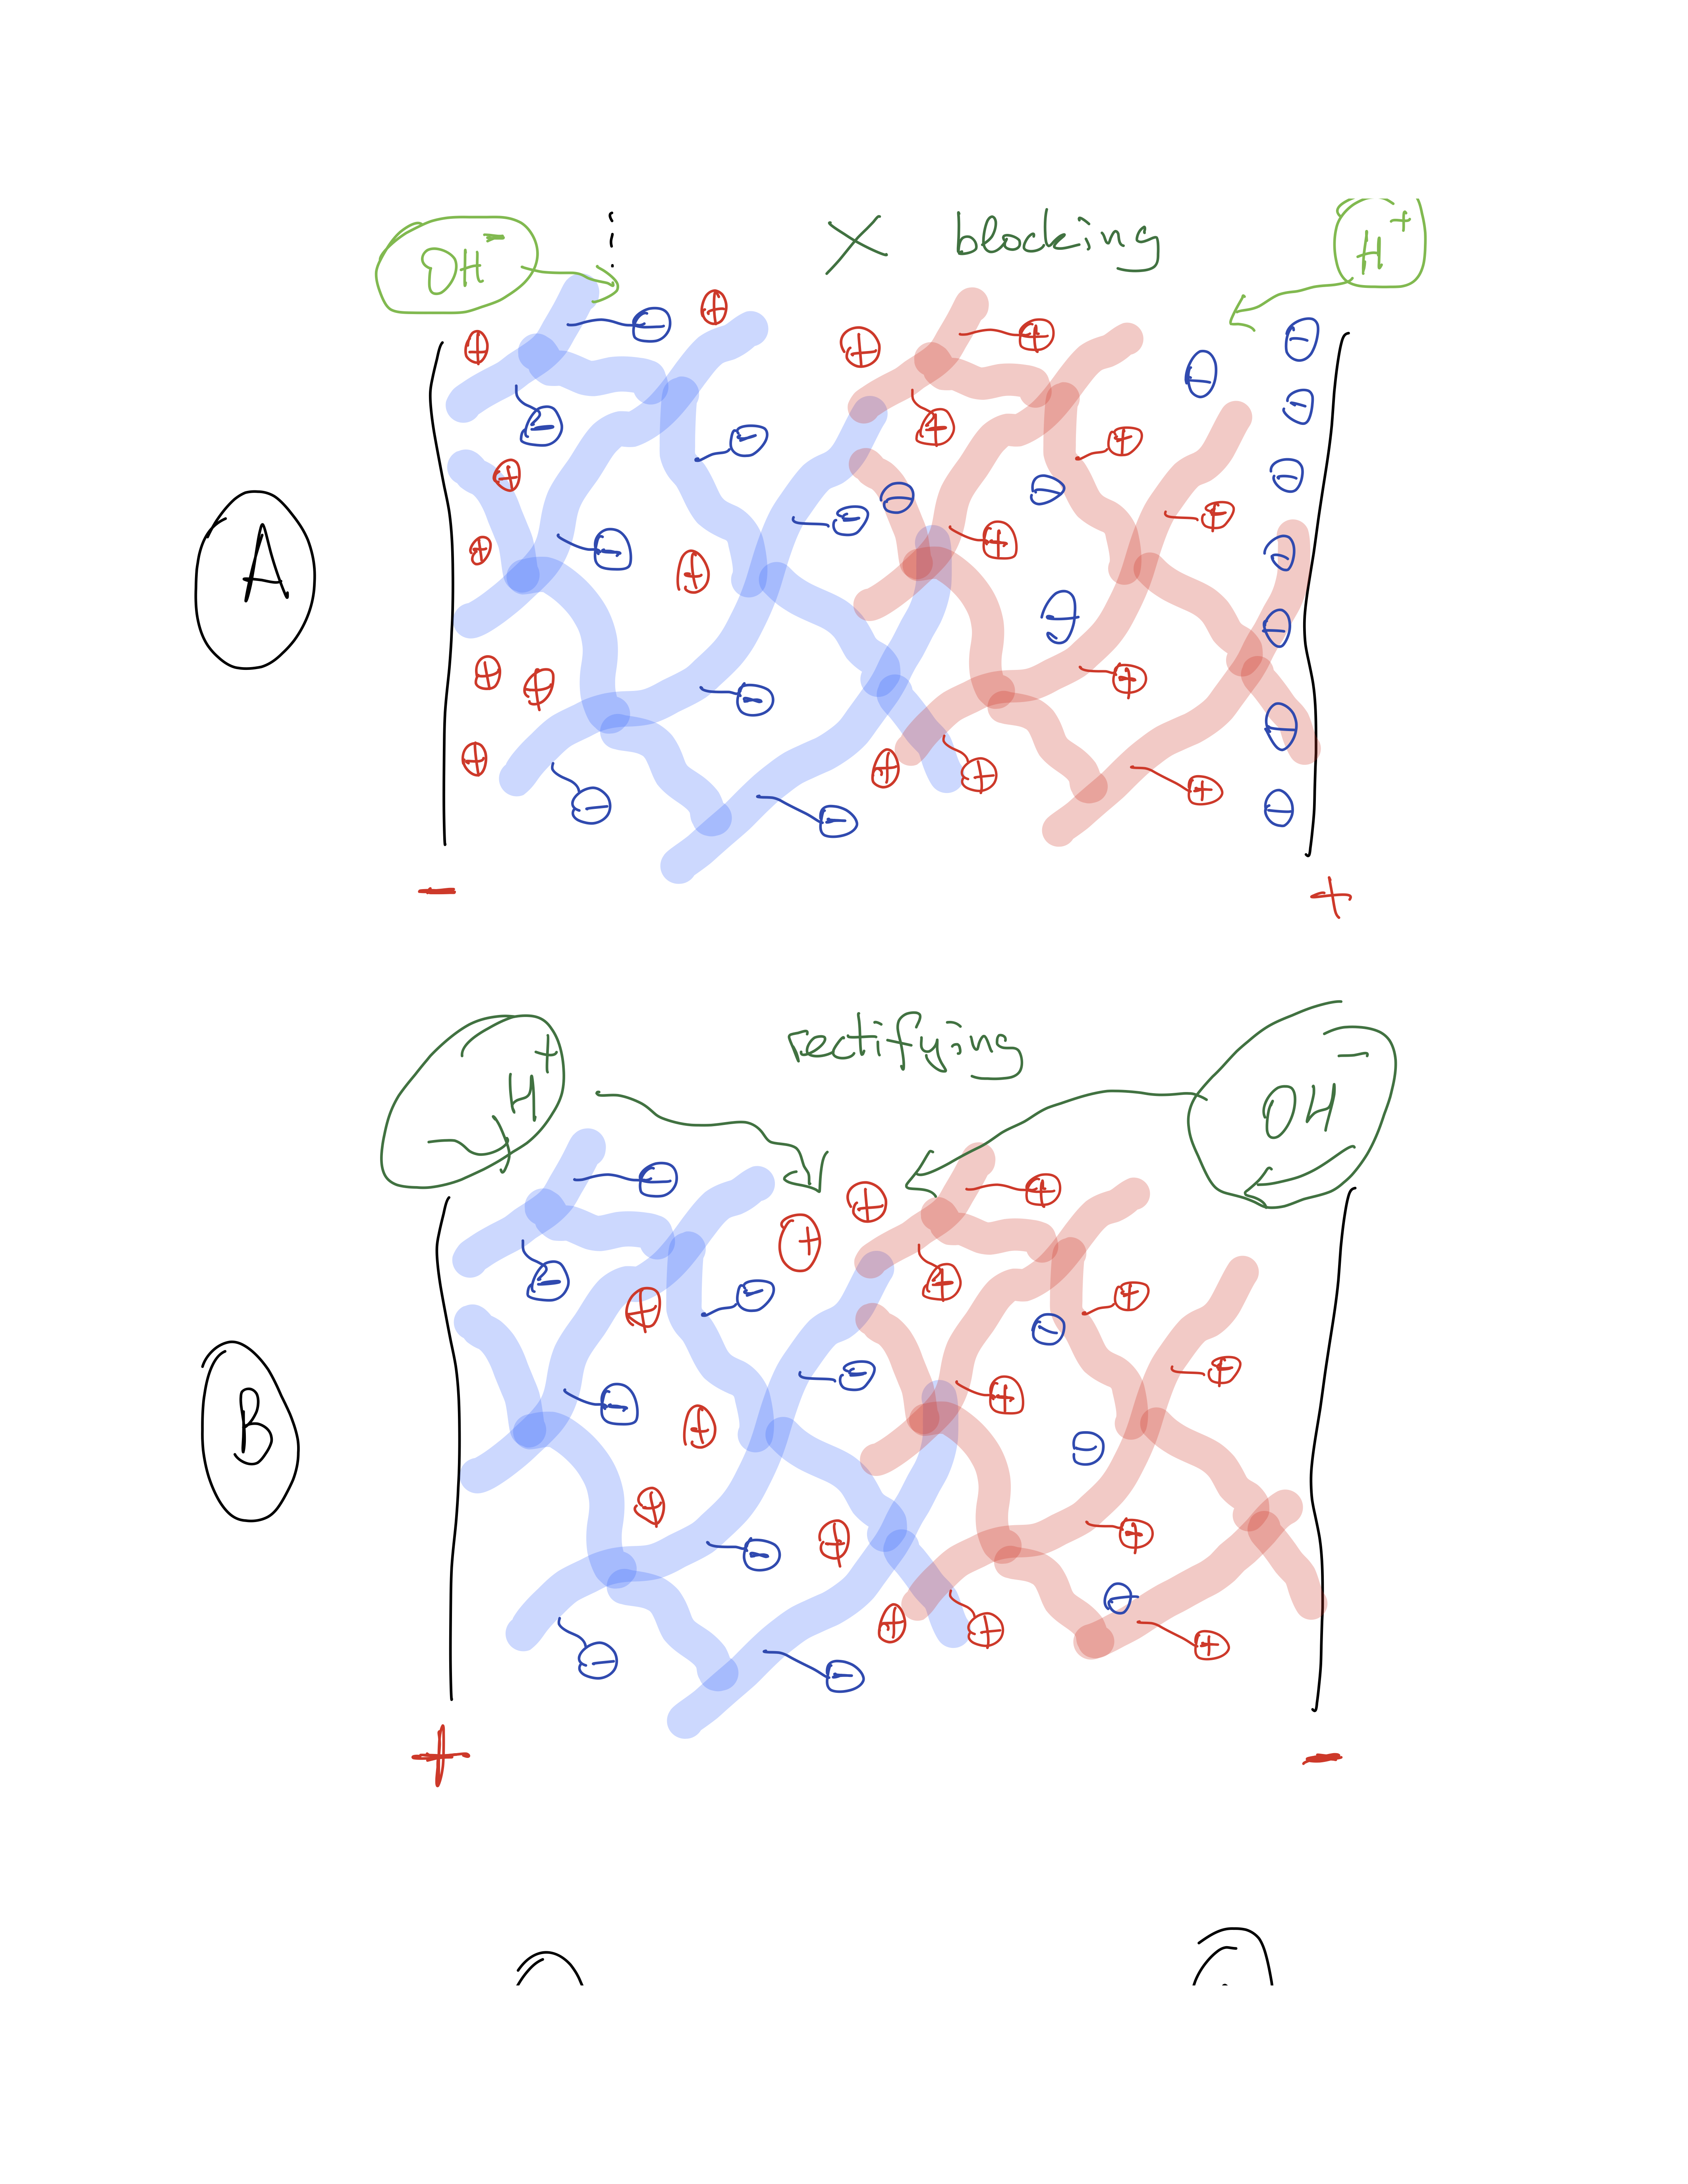 OH⁻ X blocking H⁺
A
− +
H⁺ rectifying OH⁻
B
+ −